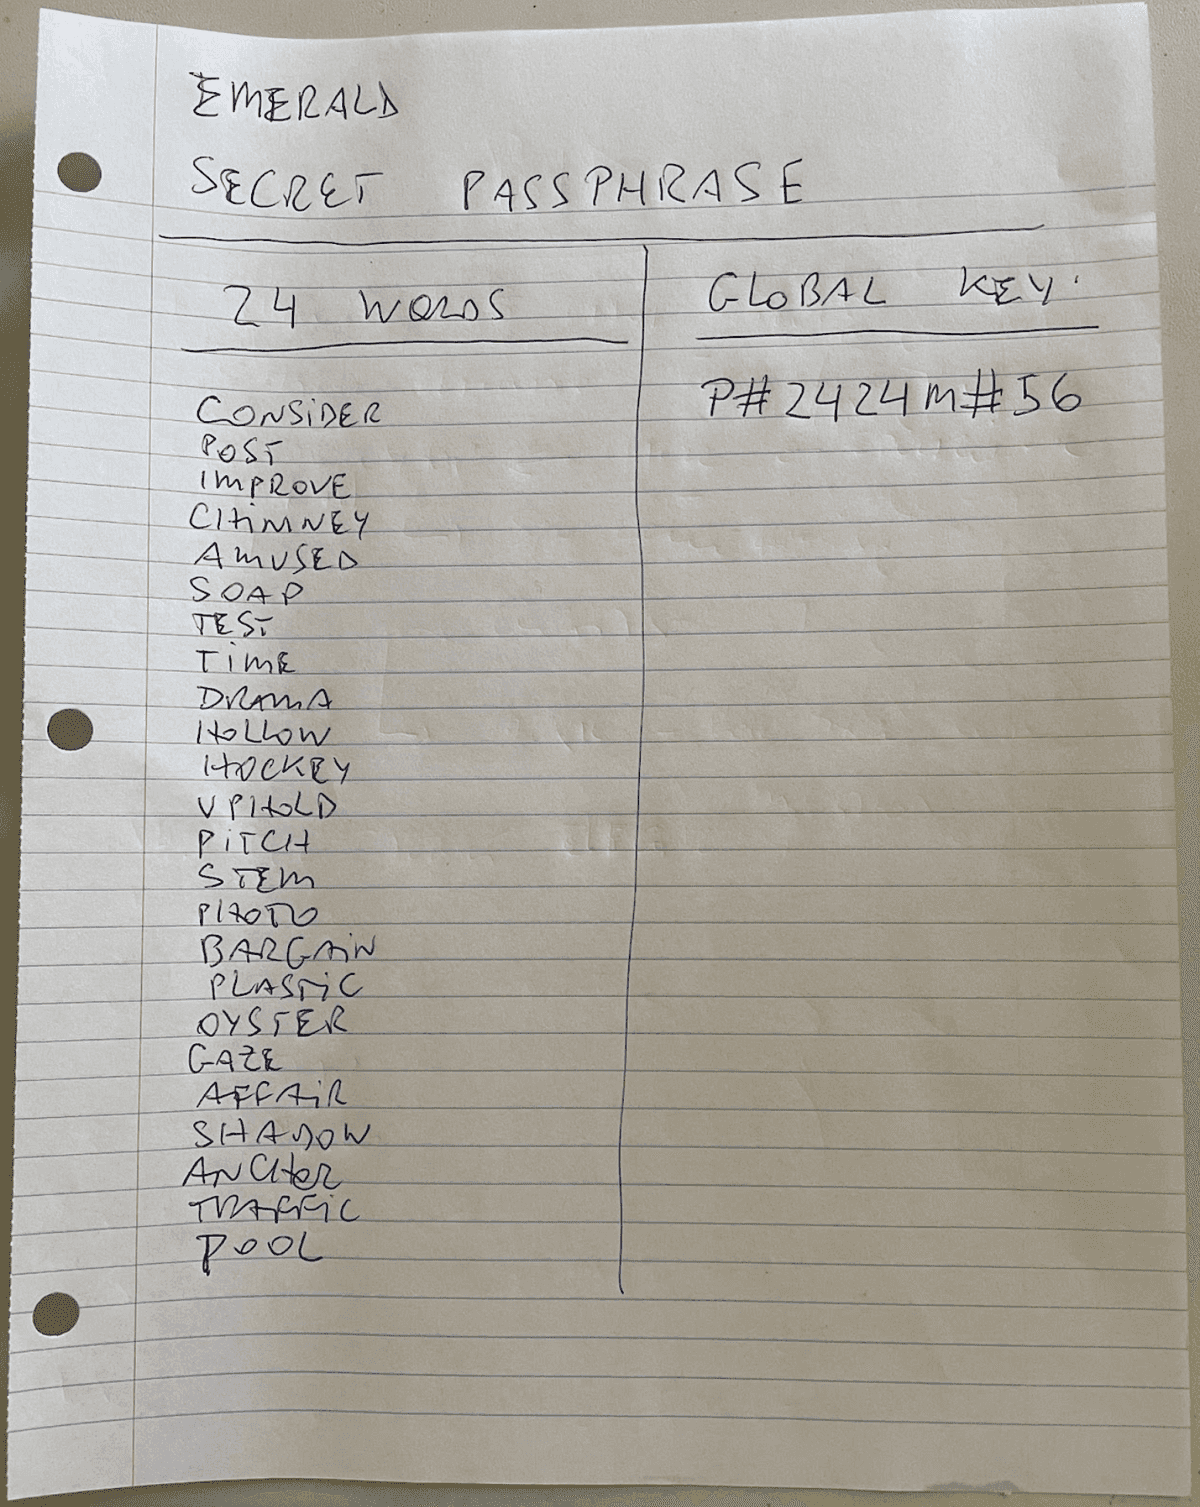 EMERALD
SECRET PASSPHRASE
24 WORDS
CONSIDER
POST
IMPROVE
CHIMNEY
AMUSED
SOAP
TEST
TIME
DRAMA
HOLLOW
HOCKEY
UPHOLD
PITCH
STEM
PHOTO
BARGAIN
PLASTIC
OYSTER
GAZE
AFFAIR
SHADOW
ANCHOR
TRAFFIC
POOL
GLOBAL KEY.
P#2424M#56